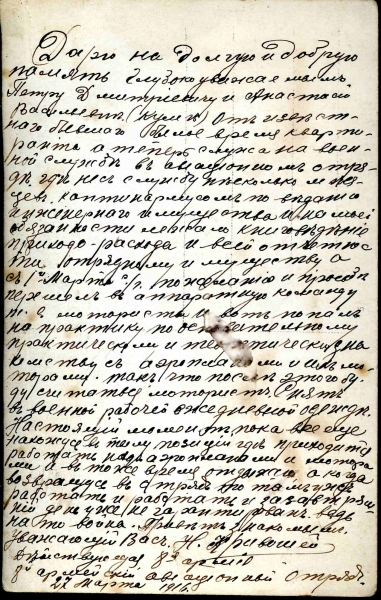 Дарю на Долгую и добрую
память Глубокоуважаемымъ
Петру Дмитріевичу и Анастасіи
Васильевн. (Кумѣ) Отъ извѣст-
наго бывшаго Былое время кварти-
ранта а теперь служа на воен-
ной службѣ въ авіаціонномъ отря-
дѣ, гдѣ несъ службу нѣсколько мѣся-
цевъ каптинармусомъ по
инженернаго имущества и на моей
обязанности лежало книговѣденіе
приходо-расхода и всей отчетнос-
ти отряднаго имущества а
съ 1го Марта с/г. по желанію и просьбѣ
перешелъ въ аппаратную команду
т. е мотористы и вотъ попалъ
на практику по
практическому и теоретическ. зна-
комству съ аэропланами и ихъ мо-
торами. такъ что послѣ этого бу-
ду считаться мотористъ. снятъ
въ военной рабочей ежедневной одеждѣ.
Настоящій моментъ пока все еще
нахожусь въ тылу позиціи гдѣ приходится
работать надъ аэропланами и мотора-
ми а въ то же время отдыхаю а когда
возвращусь въ отрядъ то тамъ нужно
работать и работать и за завтраш-
ній день уже не гарантированъ ведь
на то война. Привѣтъ знакомымъ.
Уважающій Васъ Н. Кривошей
Дѣйствующая 8я армія
8й армейскій авіаціонный Отрядъ.
27 Марта 1916 г.